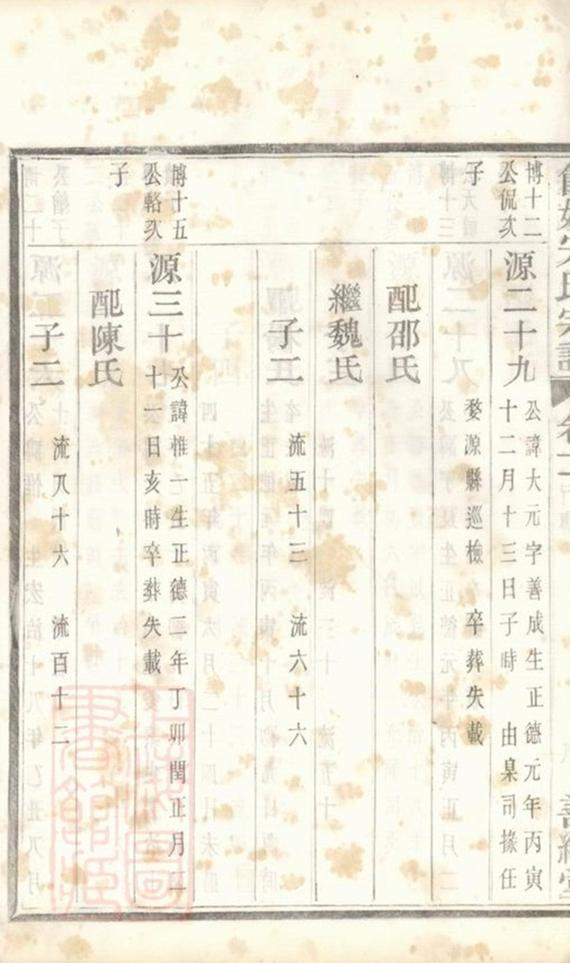 博十二
公侃次
子
源二十九
公諱大元字善成生正德元年丙寅
十二月十三日子時 由臬司掾任
婺源縣巡檢 卒葬失載
配邵氏
繼魏氏
子二
流五十三 流六十六
博十五
公輅次
子
源三十
公諱惟一生正德二年丁卯閏正月二
十一日亥時卒葬失載
配陳氏
子二
流八十六 流百十二